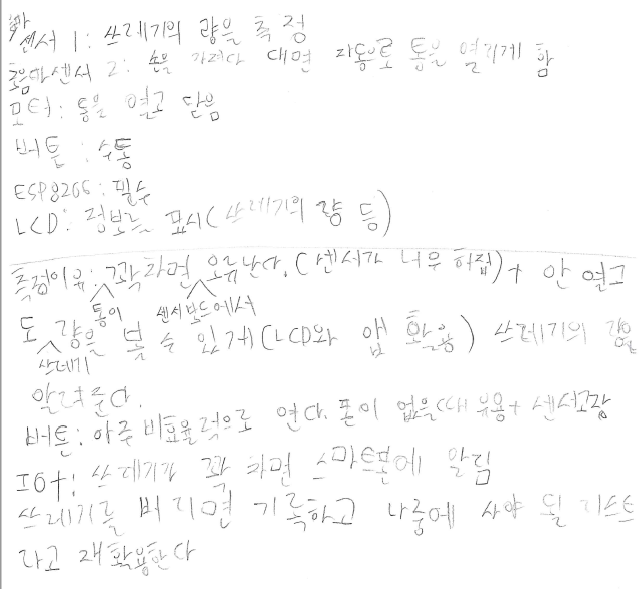 초음파
센서 1: 쓰레기의 량을 측정
초음파센서 2: 손을 가져다 대면 자동으로 통을 열리게 함
모터: 통을 열고 닫음
버튼: 수동
ESP8266: 필수
LCD: 정보를 표시(쓰레기의 량 등)
측정이유: 꽉 차면 오류난다. (센서가 너무 허접) + 안 열고
통이 센서보드에서
도 량을 볼 수 있게(LCD와 앱 활용) 쓰레기의 량을
쓰레기
알려준다.
버튼: 아주 비효율적으로 연다. 폰이 없을때 유용 + 센서고장
IOt: 쓰레기가 꽉 차면 스마트폰에 알림
쓰레기를 버리면 기록하고 나중에 사야 될 리스트
라고 재활용한다